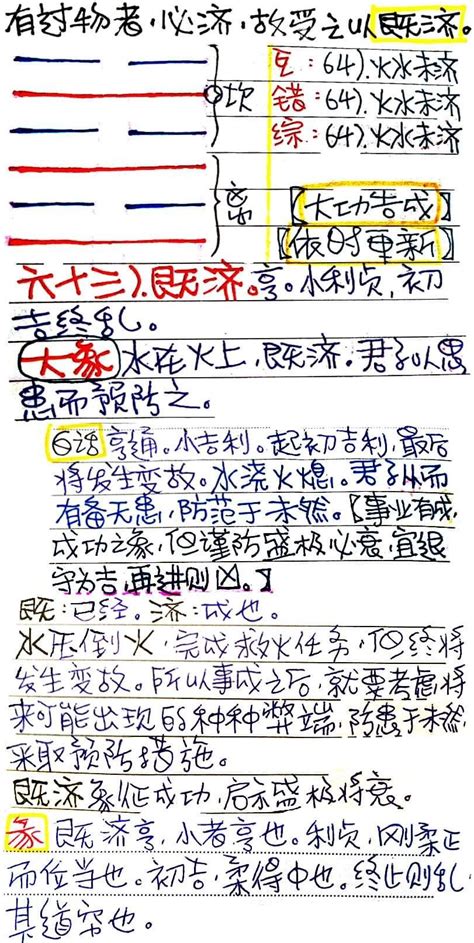 有过物者，必济，故受之以既济。
坎
互：64).火水未济
错：64).火水未济
综：64).火水未济
离
【大功告成】
【依时重新】
六十三).既济。亨。小利贞，初
吉终乱。
大象 水在火上，既济。君子以思
患而预防之。
白话 亨通。小吉利。起初吉利，最后
将发生变故。水浇火熄。君子从而
有备无患，防范于未然。【事业有成，
成功之象，但谨防盛极必衰，宜退
守为吉，再进则凶。】
既：已经。济：成也。
水压倒火，完成救火任务，但终将
发生变故。所以事成之后，就要考虑将
来可能出现的种种弊端，防患于未然，
采取预防措施。
既济象征成功，启示盛极将衰。
彖 既济亨，小者亨也。利贞，刚柔正
而位当也。初吉，柔得中也。终止则乱，
其道穷也。